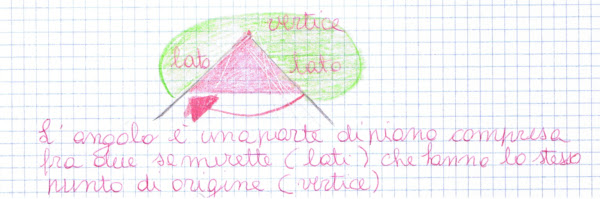 vertice
lato
lato
L'angolo è una parte di piano compresa
fra due semirette (lati) che hanno lo stesso
punto di origine (vertice)